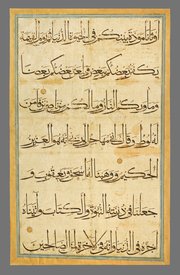 اوثانا مودة بينكم في الحيوة الدنيا ثم يوم القيمة
يكفر بعضكم ببعض ويلعن بعضكم بعضا
ومأويكم النار وما لكم من ناصرين فامن
له لوط وقال اني مهاجر الى ربي انه هو العزيز
الحكيم ووهبنا له اسحق ويعقوب و
جعلنا في ذريته النبوة والكتاب واتيناه
اجره في الدنيا وانه في الاخرة لمن الصالحين